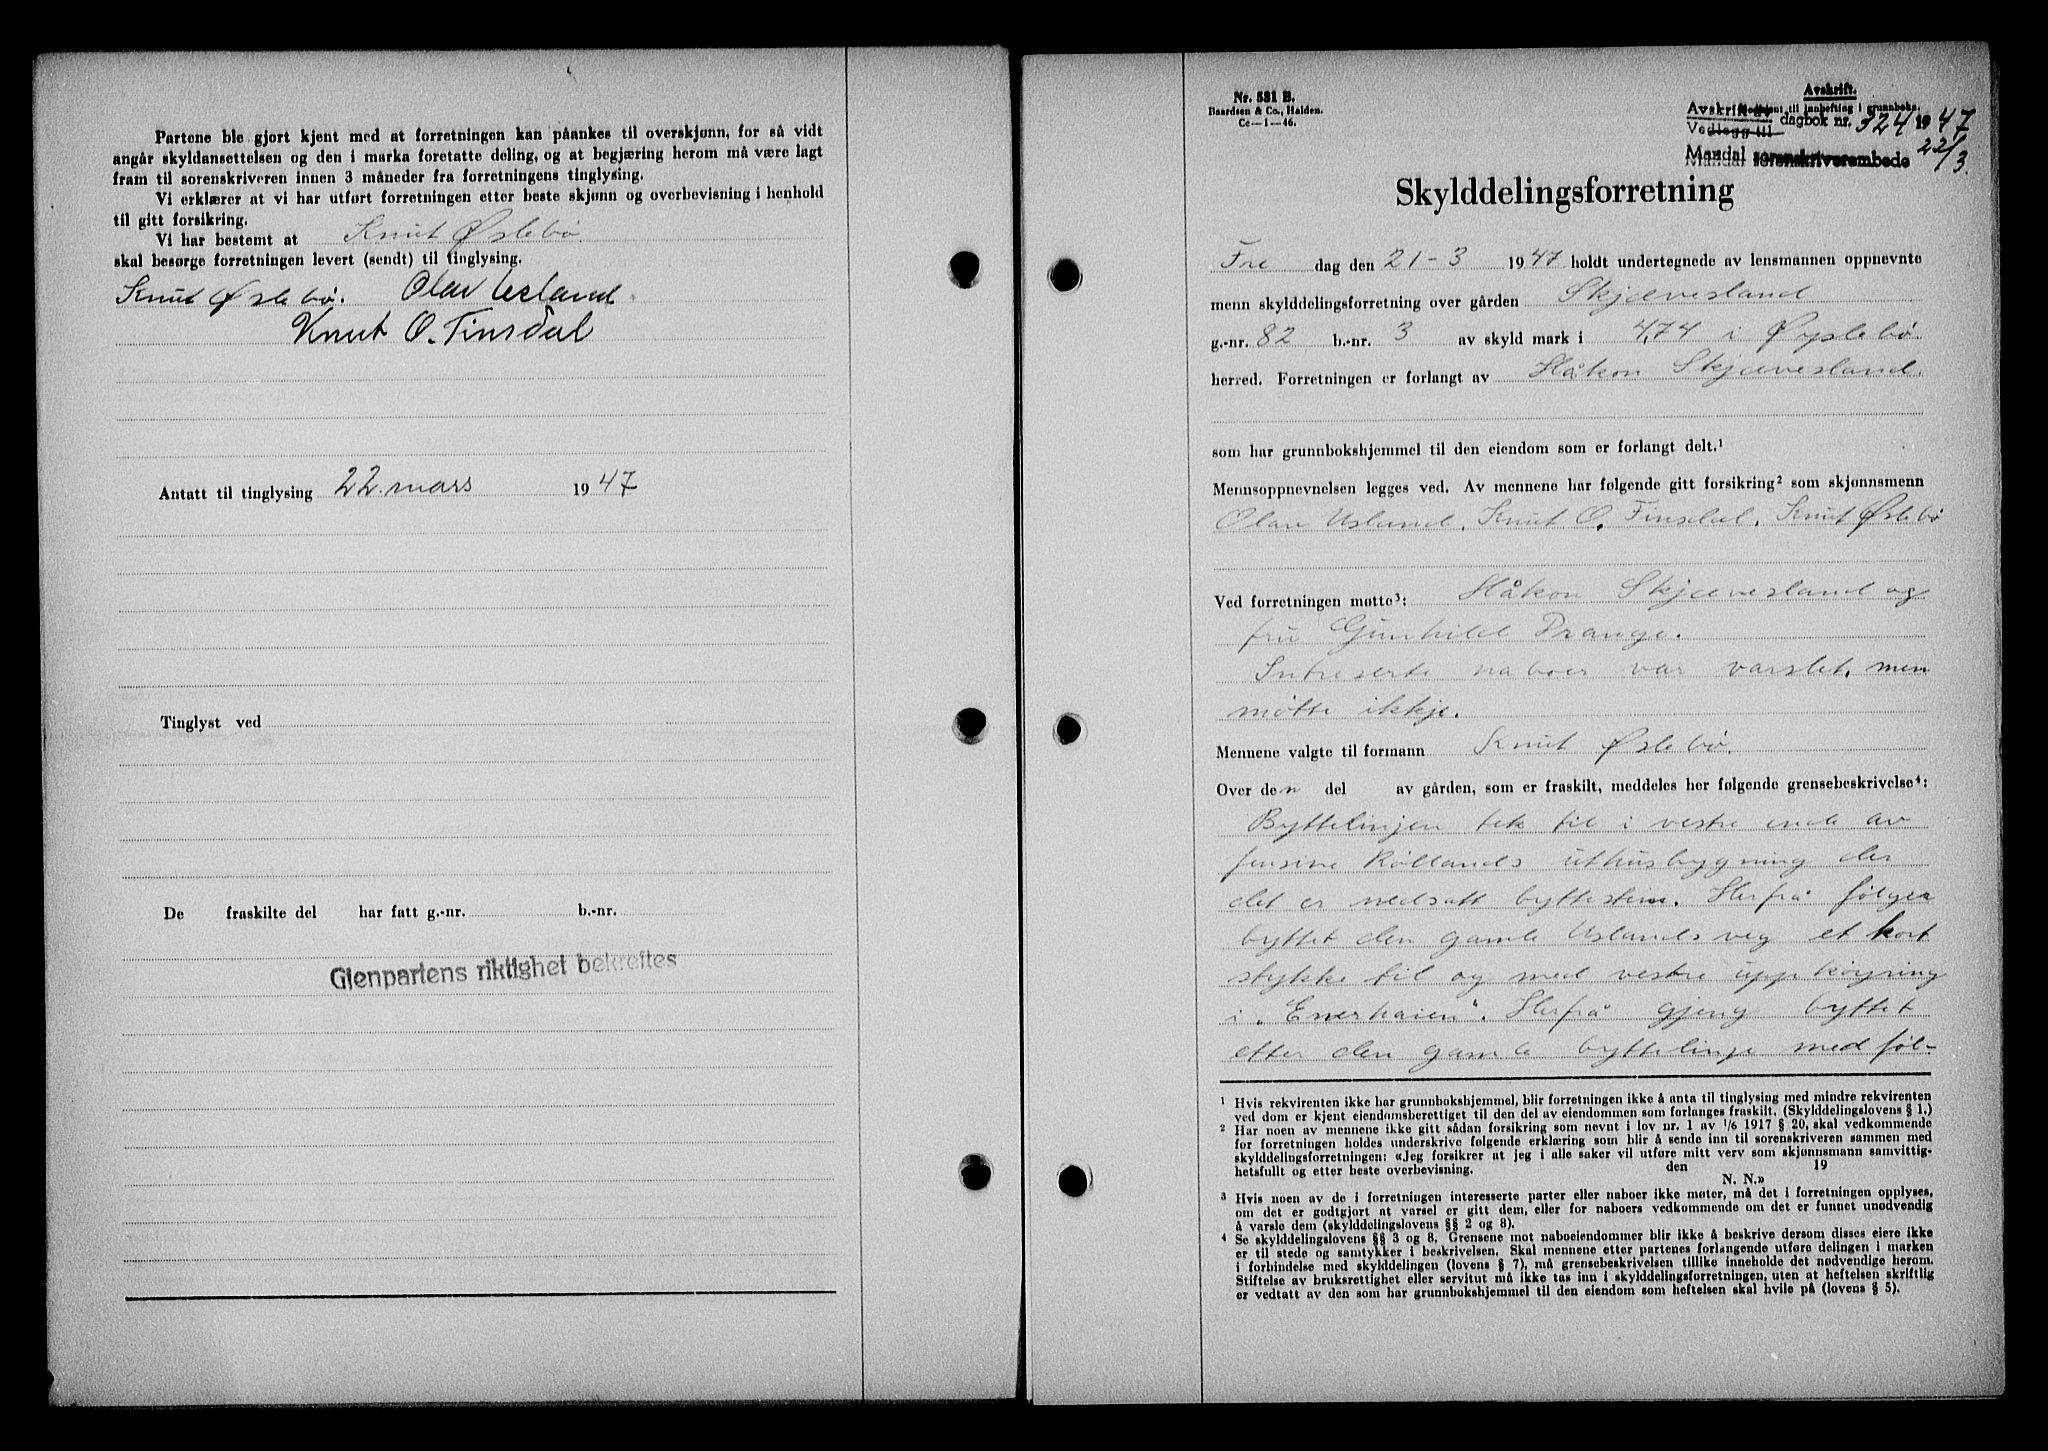 Partene ble gjort kjent med at forretningen kan påankes til overskjønn, for så vidt
angår skyldansettelsen og den i marka foretatte deling, og at begjæring herom må være lagt
fram til sorenskriveren innen 3 måneder fra forretningens tinglysing.
Vi erklærer at vi har utført forretningen etter beste skjønn og overbevisning i henhold
til gitt forsikring.
Vi har bestemt at Knut Øslebø.
skal besørge forretningen levert (sendt) til tinglysing.
Knut Øslebø. Olav Usland
Knut O. Finsdal
Antatt til tinglysing 22. mars 1947
Tinglyst ved
De fraskilte del har fatt g.-nr. b.-nr.
Gjenpartens riktighet bekreftes
Nr. 531 B.
Baardsen & Co., Halden.
Ce—1—46.
Avskrift.
Avskrift av til innhefting i grunnboka.
Vedlegg til dagbok nr. 324 1947
Mandal sorenskriverembede 22/3.
Skylddelingsforretning
Fre dag den 21-3 1947 holdt undertegnede av lensmannen oppnevnte
menn skylddelingsforretning over gården Skjævesland
g.-nr. 82 b.-nr. 3 av skyld mark i 4,74 i Øyslebø
herred. Forretningen er forlangt av Håkon Skjævesland.
som har grunnbokshjemmel til den eiendom som er forlangt delt.¹
Mennsoppnevnelsen legges ved. Av mennene har følgende gitt forsikring² som skjønnsmenn
Olav Usland, Knut O. Finsdal, Knut Øslebø
Ved forretningen møtte³: Håkon Skjævesland og
fru Gunhild Prange.
Intreserte naboer var varslet, men
møtte ikkje.
Mennene valgte til formann Knut Øslebø.
Over den del av gården, som er fraskilt, meddeles her følgende grensebeskrivelse⁴:
Byttelinjen tek til i vestre ende av
Jensine Røllands uthusbygning der
det er nedsatt byttestein. Herfrå følgjer
byttet den gamle Uslandsveg et kort
stykke til og med vestre uppkøyring
i „Enerhaien“. Herfrå gjeng byttet
etter den gamle byttelinje med føl-
¹ Hvis rekvirenten ikke har grunnbokshjemmel, blir forretningen ikke å anta til tinglysing med mindre rekvirenten
ved dom er kjent eiendomsberettiget til den del av eiendommen som forlanges fraskilt. (Skylddelingslovens § 1.)
² Har noen av mennene ikke gitt sådan forsikring som nevnt i lov nr. 1 av 1/6 1917 § 20, skal vedkommende
før forretningen holdes underskrive følgende erklæring som blir å sende inn til sorenskriveren sammen med
skylddelingsforretningen: «Jeg forsikrer at jeg i alle saker vil utføre mitt verv som skjønnsmann samvittig-
hetsfullt og etter beste overbevisning. den 19
N. N.»
³ Hvis noen av de i forretningen interesserte parter eller naboer ikke møter, må det i forretningen opplyses,
om det er godtgjort at varsel er gitt dem, eller for naboers vedkommende om det er funnet unødvendig
å varsle dem (skylddelingslovens §§ 2 og 8).
⁴ Se skylddelingslovens §§ 3 og 8. Grensene mot naboeiendommer blir ikke å beskrive dersom disses eiere ikke
er til stede og samtykker i beskrivelsen. Skal mennene etter partenes forlangende utføre delingen i marken
i forbindelse med skylddelingen (lovens § 7), må grensebeskrivelsen tillike inneholde det nødvendige herom.
Stiftelse av bruksrettighet eller servitut må ikke tas inn i skylddelingsforretningen, uten at heftelsen skriftlig
er vedtatt av den som har grunnbokshjemmel til den eiendom som heftelsen skal hvile på (lovens § 5).